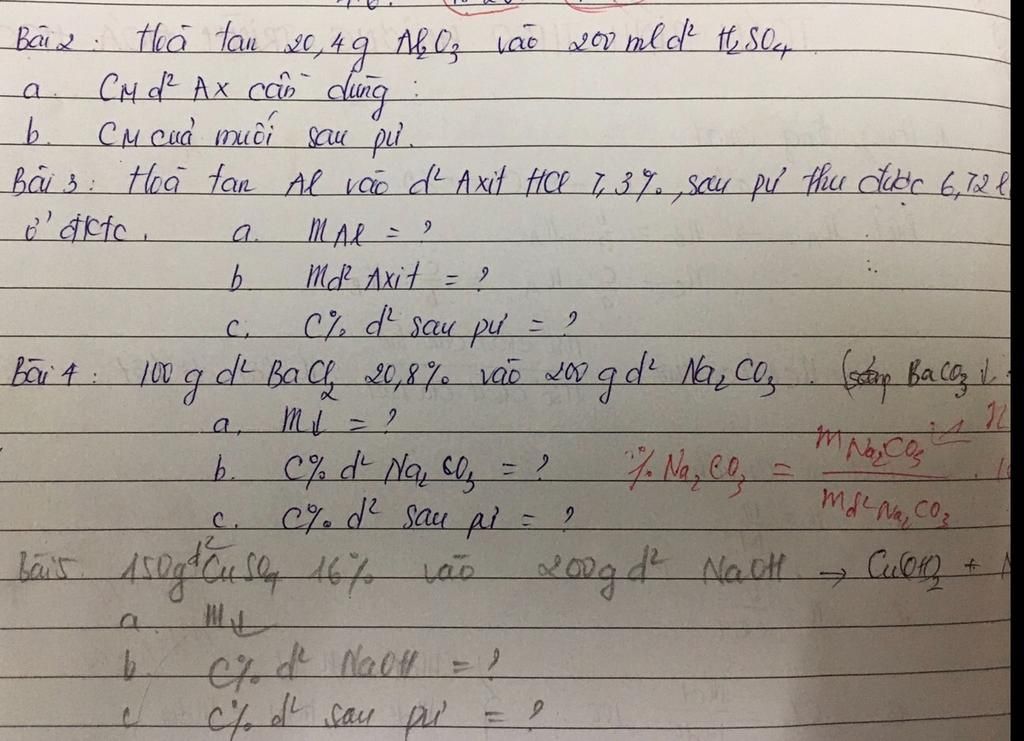 Bài 2 : Hoà tan 20,4g Al2O3 vào 200 ml d² H2SO4
a. CM d² Ax cần dùng :
b. CM của muối sau pư.
Bài 3 : Hoà tan Al vào d² Axit HCl 7,3%, sau pư thu được 6,72 l
ở đktc. a. mAl = ?
b. md² Axit = ?
c. C% d² sau pư = ?
Bài 4 : 100 g d² BaCl2 20,8% vào 200 g d² Na2CO3. BaCO3 ↓
a. m↓ = ?
b. C% d² Na2CO3 = ? % Na2CO3 = mNa2CO3 / md² Na2CO3 .
c. C% d² sau pư = ?
Bài 5. 150g d² CuSO4 16% vào 200g d² NaOH → Cu(OH)2 +
a. m↓
b. C% d² NaOH = ?
c C% d² sau pư = ?